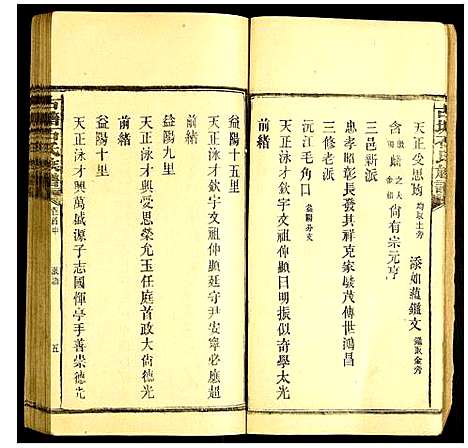 天正受思均 均取土旁 添如蘊鑑文 鑑取金旁
尚有宗元亨
三邑新派
忠孝昭彰長發其祥克家毓茂傳世鴻昌
三修老派
沅江毛角口 益陽分支
天正泳才欽宇文祖仲顯日明振似奇學太光
前緒
益陽十五里
天正泳才欽宇文祖仲顯廷守尹安寧必應超
前緒
益陽九里
天正泳才興受思榮允玉任庭首政大尚德光
前緒
益陽十里
天正泳才興萬盛源子志國惲亭手善崇德光
五